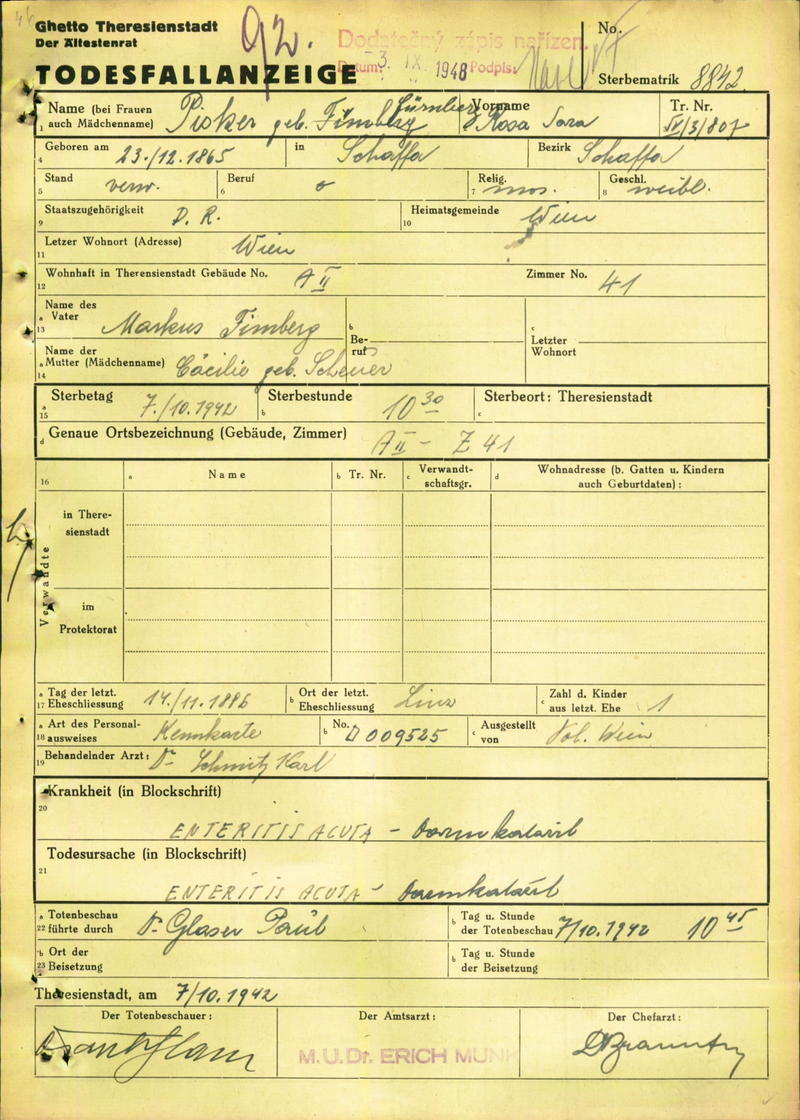 Ghetto Theresienstadt
Der Ältestenrat
92.
Dodatečný zápis nařízen.
Datum: 3. IX. 1948 Podpis:
No.
TODESFALLANZEIGE
Sterbematrik 8842
Name (bei Frauen auch Mädchennamen) Pisker geb. Fürnberg
Vorname Rosa Sara
Tr. Nr. IV/3/807
Geboren am 23./12.1865 in Schaffa Bezirk Schaffa
Stand verw. Beruf o Relig. mos. Geschl. weibl.
Staatszugehörigkeit D. R. Heimatsgemeinde Wien
Letzer Wohnort (Adresse) Wien
Wohnhaft in Theresienstadt Gebäude No. A II Zimmer No. 41
Name des Vater Markus Fürnberg
Beruf
Letzter Wohnort
Name der Mutter (Mädchenname) Cäcilie geb. Scheuer
Sterbetag 7./10.1942 Sterbestunde 10 30 Sterbeort: Theresienstadt
Genaue Ortsbezeichnung (Gebäude, Zimmer) A II - Z 41
Name Tr. Nr. Verwandtschaftsgr. Wohnadresse (b. Gatten u. Kindern auch Geburtdaten):
Verwandte
in Theresienstadt
im Protektorat
Tag der letzt. Eheschliessung 14./11.1886 Ort der letzt. Eheschliessung Linz Zahl d. Kinder aus letzt. Ehe 1
Art des Personalausweises Kennkarte No. D 009525 Ausgestellt von Pol. Wien
Behandelnder Arzt: Dr. Schmitz Karl
Krankheit (in Blockschrift)
ENTERITIS ACUTA - Darmkatarrh
Todesursache (in Blockschrift)
ENTERITIS ACUTA - Darmkatarrh
Totenbeschau führte durch Dr. Glaser Paul Tag u. Stunde der Totenbeschau 7/10.1942 10 45
Ort der Beisetzung Tag u. Stunde der Beisetzung
Theresienstadt, am 7/10.1942
Der Totenbeschauer: Der Amtsarzt: Der Chefarzt:
M.U.Dr. ERICH MUNK